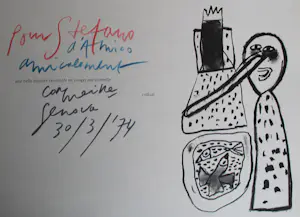 pour Stefano
d'Amico
amicalement
Corneille
Genova
30/3/'74